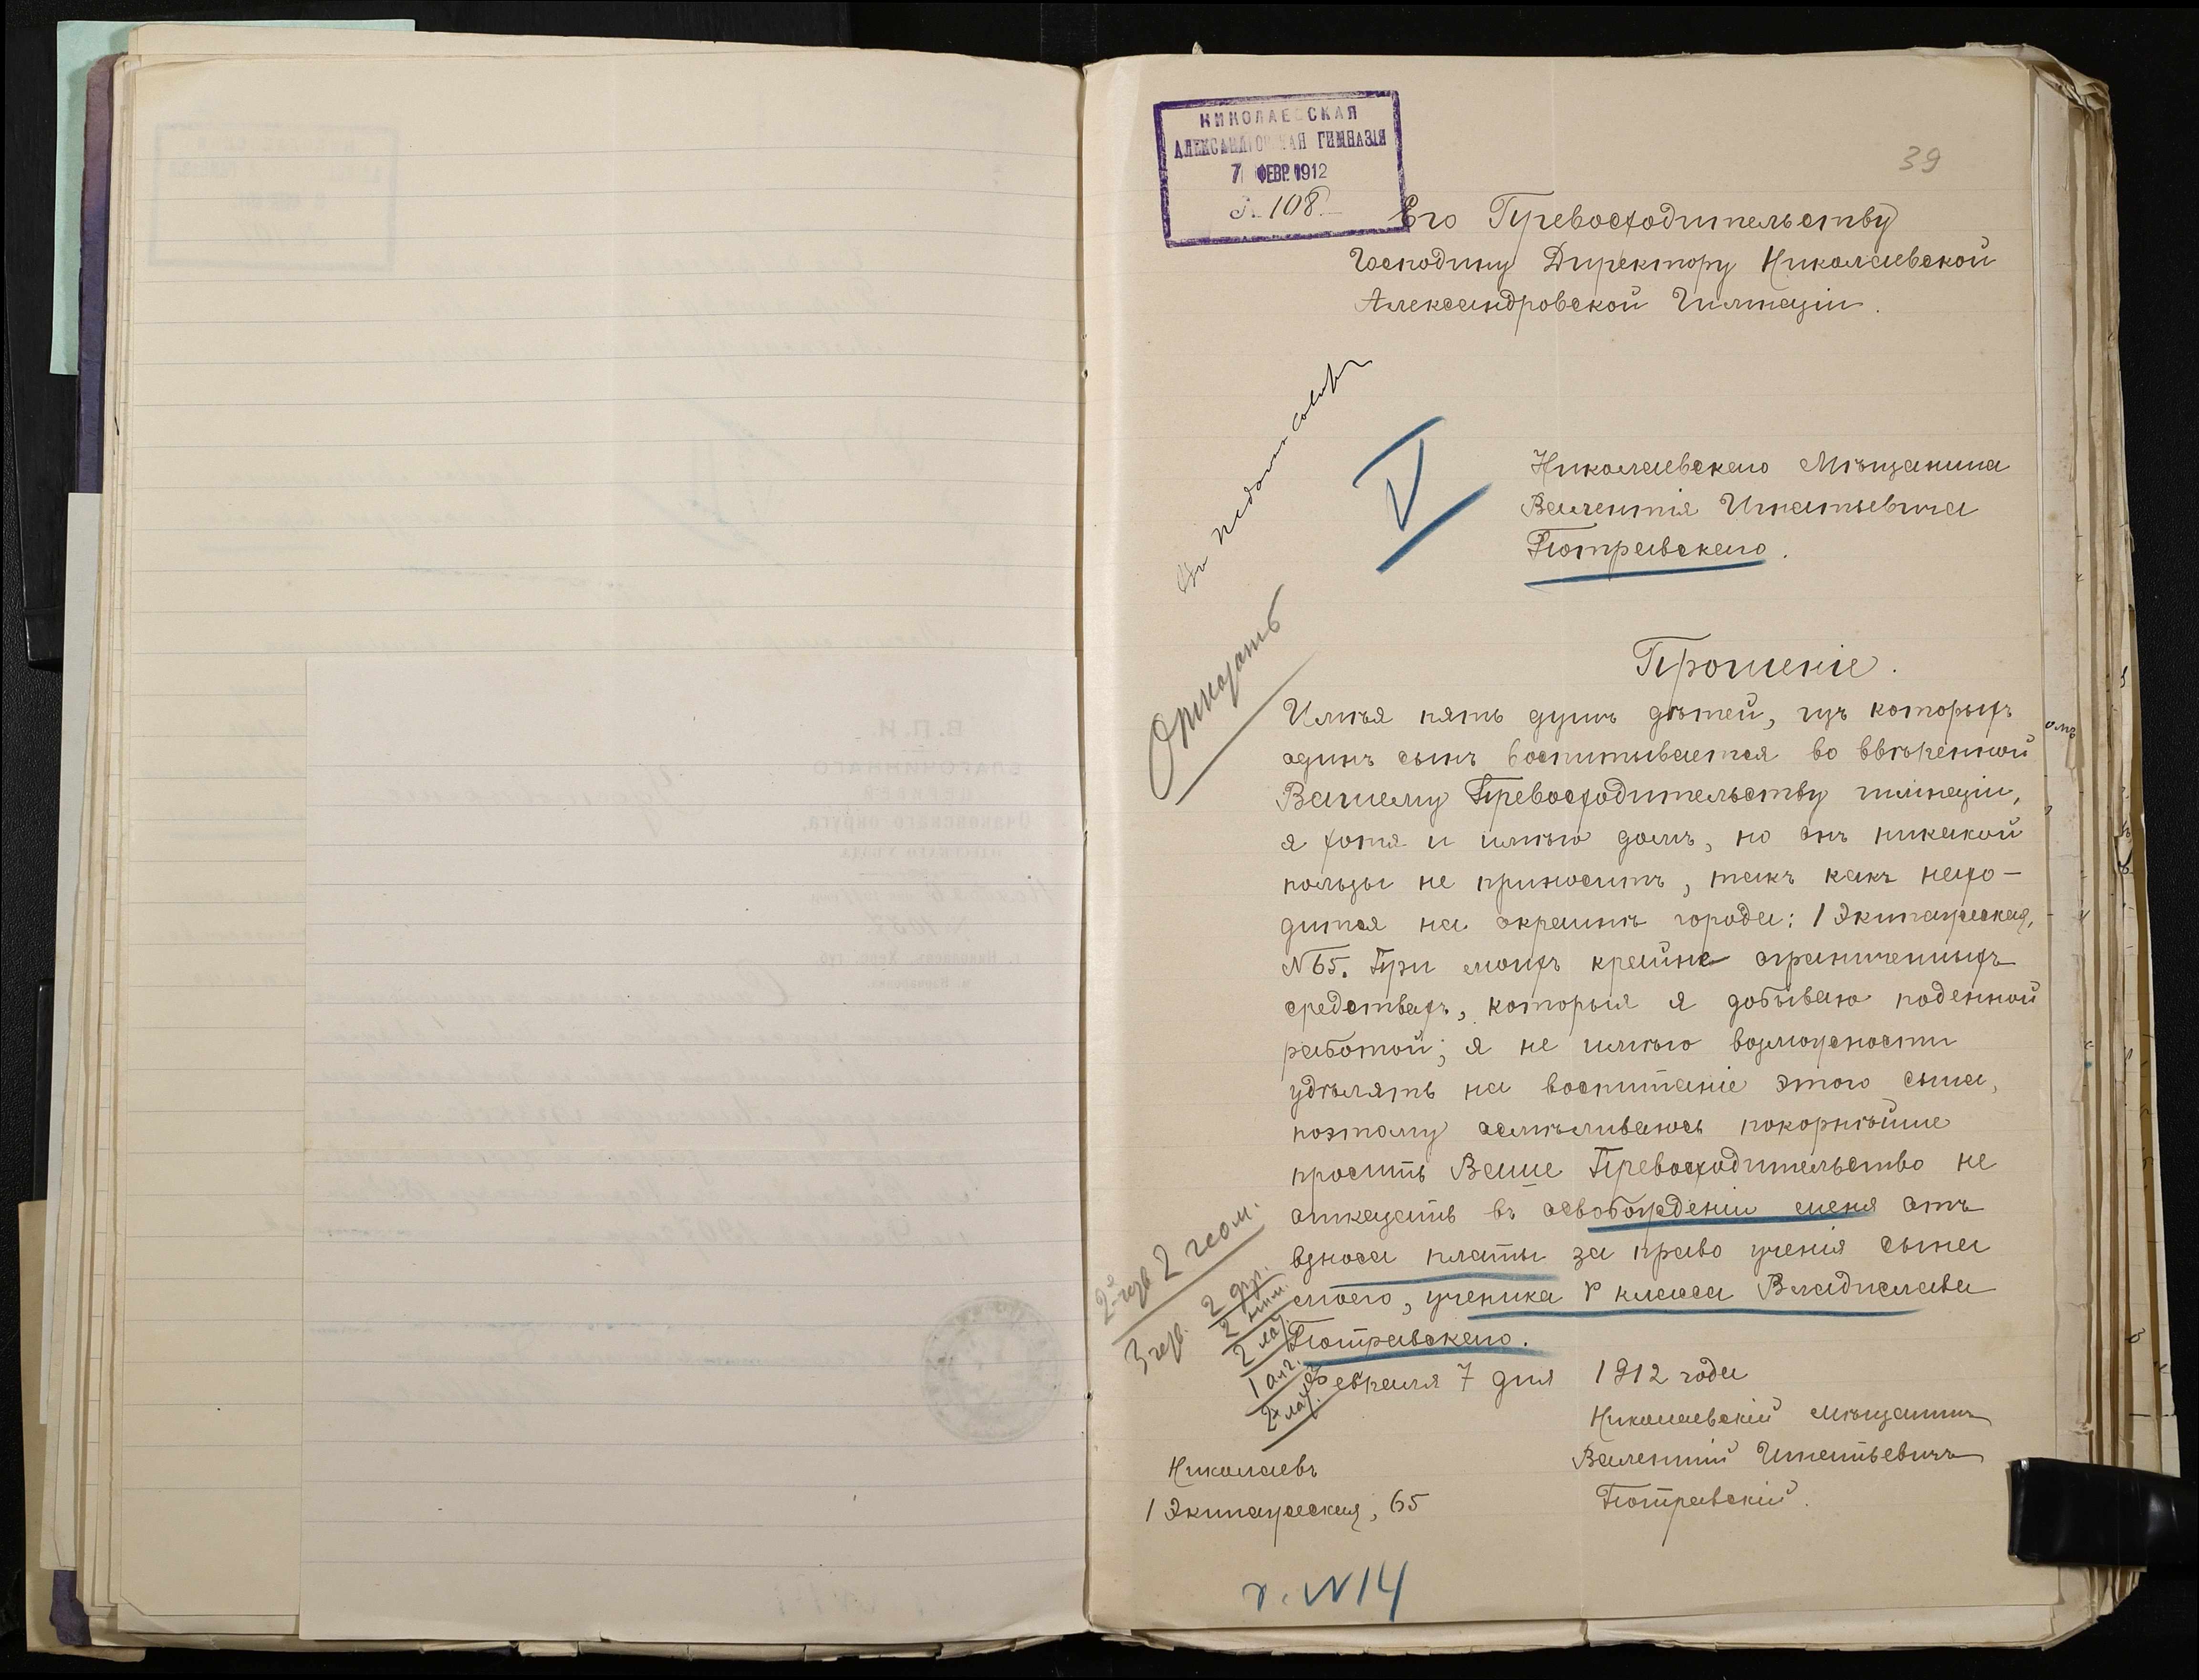 НИКОЛАЕВСКАЯ
АЛЕКСАНДРОВСКАЯ ГИМНАЗІЯ
7 ФЕВР. 1912
108
39
Его Превосходительству
Господину Директору Николаевской
Александровской Гимназіи.
V
Николаевскаго Мѣщанина
Валентія Игнатьевича
Піотравскаго.
Отказать
Прошеніе.
Имѣя пять душъ дѣтей, изъ которыхъ
одинъ сынъ воспитывается во ввѣренной
Вашему Превосходительству гимназіи,
я хотя и имѣю домъ, но онъ никакой
пользы не приноситъ, такъ какъ нахо-
дится на окраинѣ города: 1 Экипажеская,
№65. При моихъ крайне ограниченныхъ
средствахъ, которыя я добываю поденной
работой; я не имѣю возможности
удѣлять на воспитаніе этого сына,
поэтому осмѣливаюсь покорнѣйше
просить Ваше Превосходительство не
отказать въ освобожденіи меня отъ
взноса платы за право ученія сына
моего, ученика V класса Владислава
Піотравскаго.
Февраля 7 дня 1912 года
Николаевскій мѣщанинъ
Валентій Игнатьевичъ
Піотравскій.
Николаевъ
1 Экипажеская, 65
2 геом.
1 алг.
№14
В.П.И.
БЛАГОЧИННАГО
Очаковскаго округа,